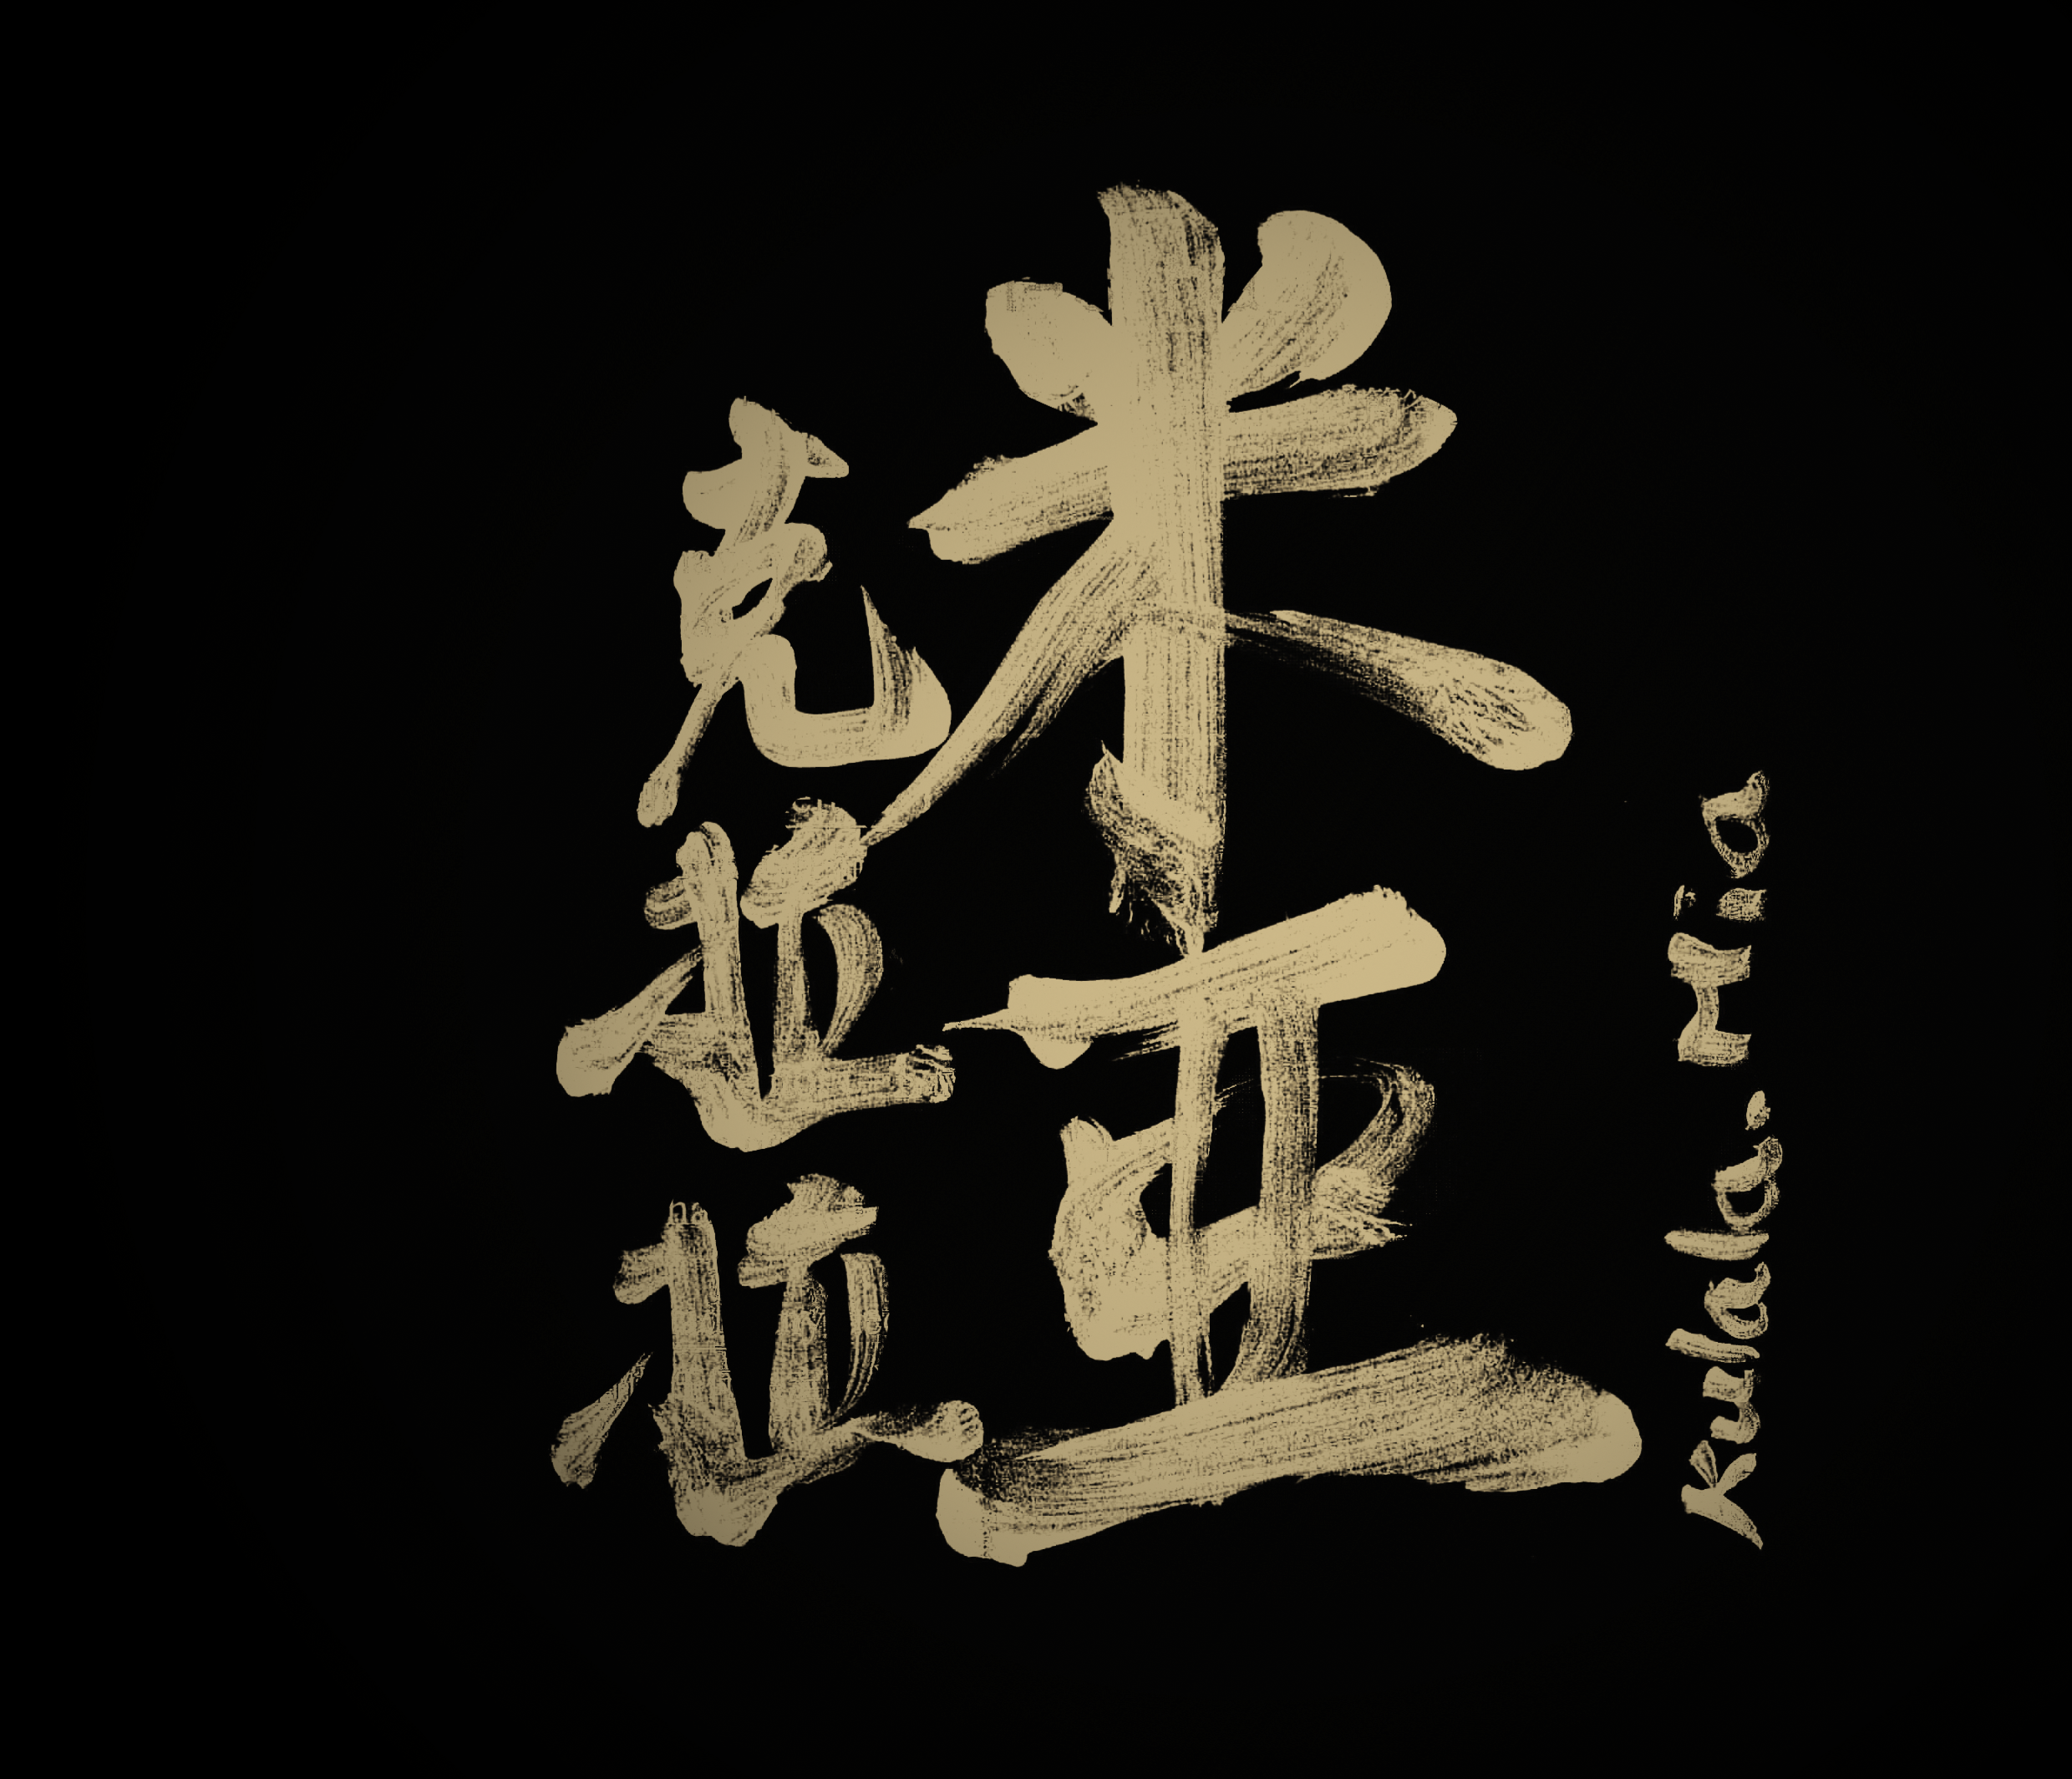 米亚
克拉拉
Kulala. Mia